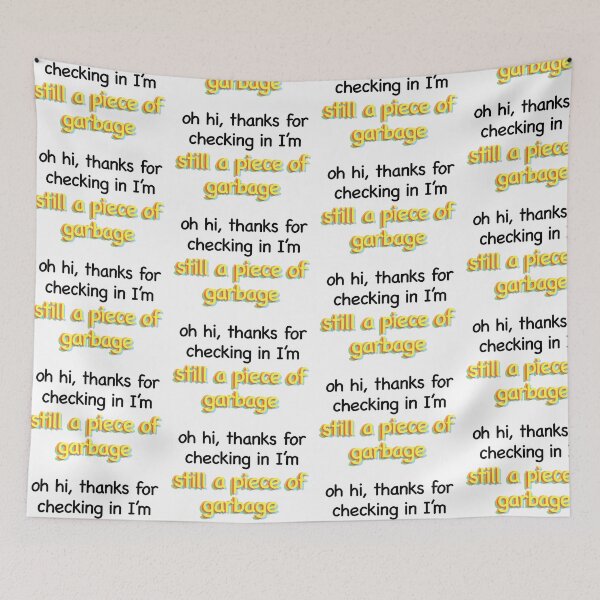 checking in I'm
still a piece of
garbage
oh hi, thanks for
checking in I'm
still a piece of
garbage
oh hi, thanks for
checking in I'm
still a piece of
garbage
oh hi, thanks for
checking in I'm
still a piece of
garbage
oh hi, thanks for
checking in I'm
garbage
oh hi, thanks for
checking in I'm
still a piece of
garbage
oh hi, thanks for
checking in I'm
still a piece of
garbage
oh hi, thanks for
checking in I'm
still a piece of
garbage
oh hi, thanks for
checking in I'm
still a piece of
garbage
checking in I'm
still a piece of
garbage
oh hi, thanks for
checking in I'm
still a piece of
garbage
oh hi, thanks for
checking in I'm
still a piece of
garbage
oh hi, thanks for
checking in I'm
still a piece of
garbage
oh hi, thanks for
checking in I'm
garbage
oh hi, thanks
checking in
still a piece
garbage
oh hi, thanks
checking in
still a piece
garbage
oh hi, thanks
checking in
still a piece
garbage
oh hi, thanks
checking in
still a piece
garbage